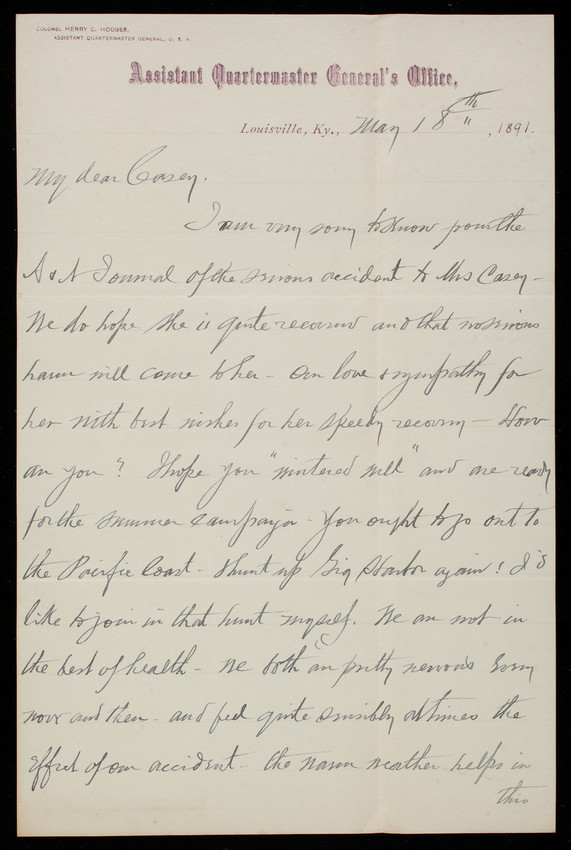 COLONEL HENRY C. HODGES,
ASSISTANT QUARTERMASTER GENERAL, U. S. A.
Assistant Quartermaster General's Office,
Louisville, Ky., May 18th, 1891.
My dear Casey.
I am very sorry to know from the
A & N Journal of the serious accident to Mrs Casey -
We do hope she is quite recovered and that no serious
harm will come to her - Our love & sympathy for
her with best wishes for her speedy recovery - How
are you? I hope you "wintered well" and are ready
for the summer campaign. You ought to go out to
the Pacific Coast - & hunt up Gig Harbor again! I'd
like to join in that hunt myself. We are not in
the best of health - We both are pretty nervous every
now and then - and feel quite sensibly at times the
effect of our accident - the warm weather helps in
this